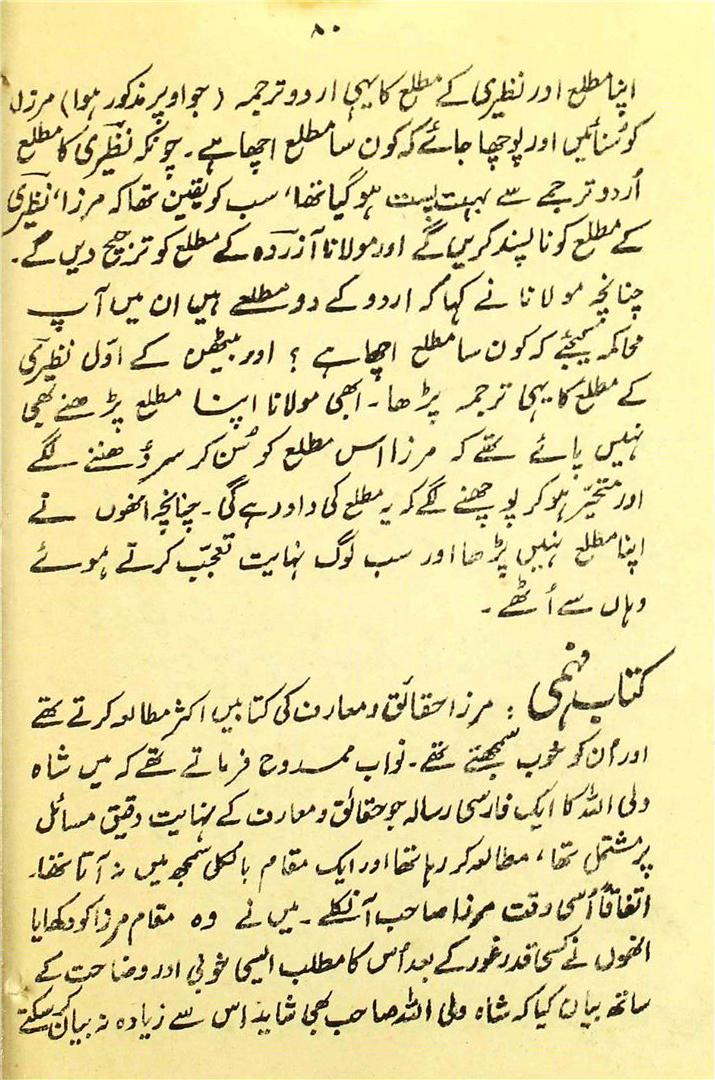 ۸۰
اپنا مطلع اور نظیری کے مطلع کا یہی اردو ترجمہ (جو اوپر مذکور ہوا) مرزا
کو سُنائیں اور پوچھا جائے کہ کون سا مطلع اچھا ہے۔ چونکہ نظیری کا مطلع
اُردو ترجمے سے بہت پست ہو گیا تھا، سب کو یقین تھا کہ مرزا، نظیری
کے مطلع کو ناپسند کریں گے اور مولانا آزردہ کے مطلع کو ترجیح دیں گے۔
چنانچہ مولانا نے کہا کہ اردو کے دو مطلعے ہیں ان میں آپ
محاکمہ کیجئے کہ کون سا مطلع اچھا ہے؟ اور بیٹھیں کے اوّل نظیری
کے مطلع کا یہی ترجمہ پڑھا۔ ابھی مولانا اپنا مطلع پڑھنے بھی
نہیں پائے تھے کہ مرزا اس مطلع کو سُن کر سر دُھننے لگے
اور متحیّر ہو کر پوچھنے لگے کہ یہ مطلع کی داور ہے گی۔ چنانچہ انھوں نے
اپنا مطلع نہیں پڑھا اور سب لوگ نہایت تعجّب کرتے ہوئے
وہاں سے اُٹھے۔
کتاب فہمی: مرزا حقائق و معارف کی کتابیں اکثر مطالعہ کرتے تھے
اور اُن کو خوب سمجھتے تھے۔ نواب ممدوح فرماتے تھے کہ میں شاہ
ولی اللہ کا ایک فارسی رسالہ جو حقائق و معارف کے نہایت دقیق مسائل
پر مشتمل تھا، مطالعہ کر رہا تھا اور ایک مقام بالکل سمجھ میں نہ آتا تھا۔
اتفاقاً اُسی وقت مرزا صاحب آنکلے۔ میں نے وہ مقام مرزا کو دکھایا
انھوں نے کسی قدر غور کے بعد اُس کا مطلب ایسی خوبی اور وضاحت کے
ساتھ بیان کیا کہ شاہ ولی اللہ صاحب بھی شاید اس سے زیادہ نہ بیان کر سکتے